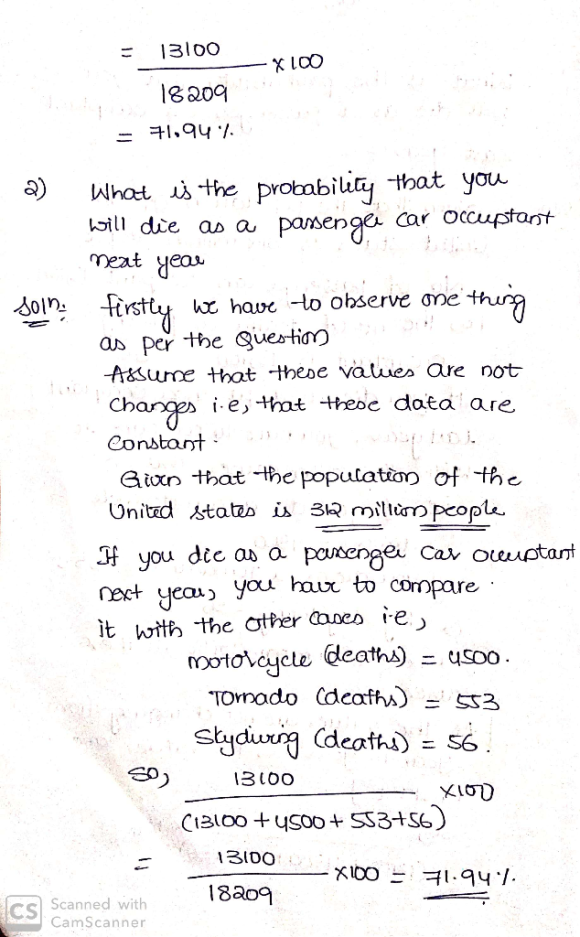 = 13100 × 100
18209
= 71.94 %.
2) What is the probability that you
will die as a passenger car occuptant
next year
Soln: firstly we have to observe one thing
as per the Question
Assume that these values are not
changes i.e, that these data are
Constant.
Given that the population of the
United states is 312 million people
If you die as a passenger car occuptant
next year, you have to compare
it with the other cases i.e,
motorcycle (deaths) = 4500.
Tornado (deaths) = 553
Skydiving (deaths) = 56.
So, 13100 ×100
(13100 + 4500 + 553 + 56)
= 13100 ×100 = 71.94 %.
18209
CS Scanned with
CamScanner